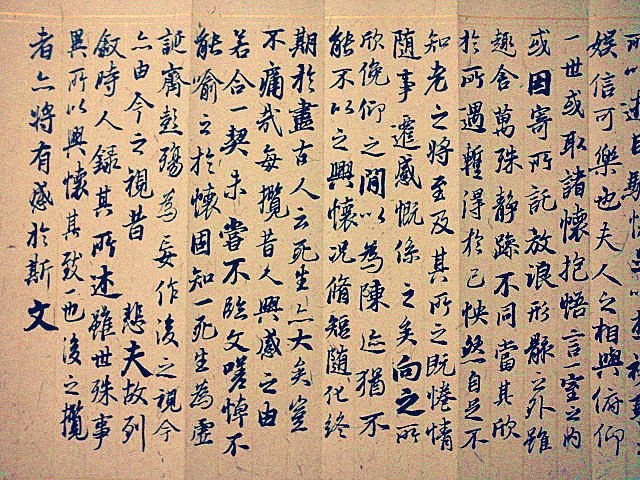 所以遊目騁懷足以極視聽
娛信可樂也夫人之相與俯仰
一世或取諸懷抱悟言一室之內
或因寄所託放浪形骸之外雖
趣舍萬殊靜躁不同當其欣
於所遇暫得於己怏然自足不
知老之將至及其所之既惓情
隨事遷感慨係之矣向之所
欣俛仰之間以為陳迹猶不
能不以之興懷況脩短隨化終
期於盡古人云死生亦大矣豈
不痛哉每攬昔人興感之由
若合一契未嘗不臨文嗟悼不
能喻之於懷固知一死生為虛
誕齊彭殤為妄作後之視今
亦由今之視昔 悲夫故列
敘時人錄其所述雖世殊事
異所以興懷其致一也後之攬
者亦將有感於斯文